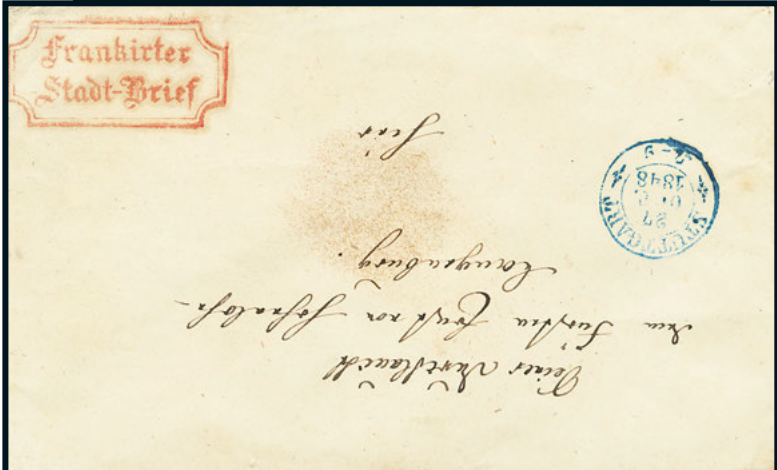 Frankirter
Stadt-Brief
STUTTGART
27
1848
Seiner Durchlaucht
dem Fürsten Ernst von Hohenlohe-
Langenburg.
hier